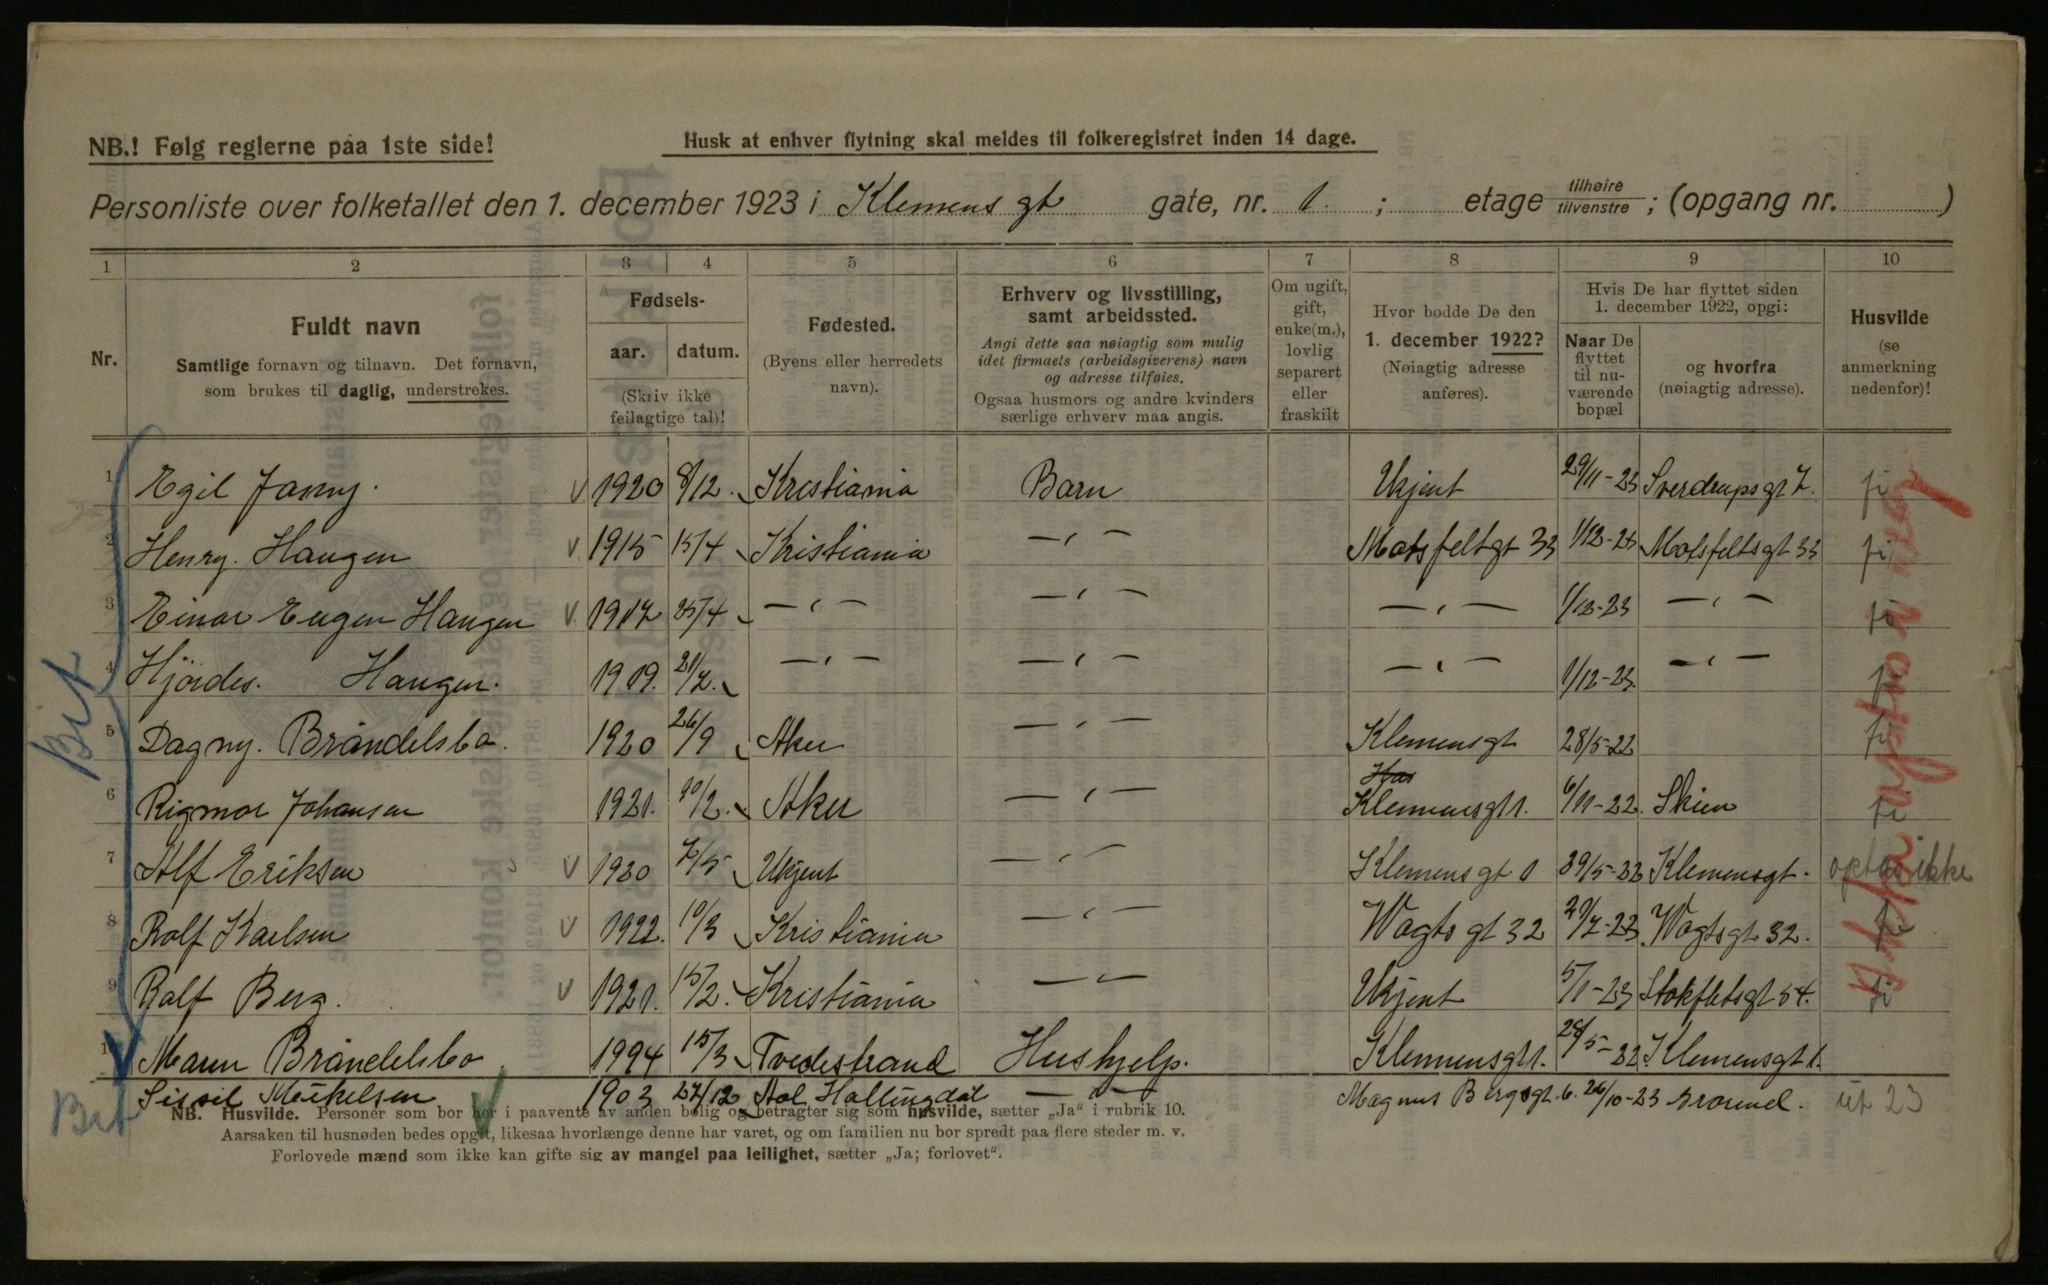 NB.! Følg reglerne paa 1ste side!
Husk at enhver flytning skal meldes til folkeregistret inden 14 dage.
Personliste over folketallet den 1. december 1923 i Klemens gt gate, nr. 1. ; etage tilhøire tilvenstre ; (opgang nr. )
1 2 3 4 5 6 7 8 9 10
Nr.
Fuldt navn
Samtlige fornavn og tilnavn. Det fornavn,
som brukes til daglig, understrekes.
Fødsels-
aar. datum.
(Skriv ikke
feilagtige tal)!
Fødested.
(Byens eller herredets
navn).
Erhverv og livsstilling,
samt arbeidssted.
Angi dette saa nøiagtig som mulig
idet firmaets (arbeidsgiverens) navn
og adresse tilføies.
Ogsaa husmors og andre kvinders
særlige erhverv maa angis.
Om ugift,
gift,
enke(m.),
lovlig
separert
eller
fraskilt
Hvor bodde De den
1. december 1922?
(Nøiagtig adresse
anføres).
Hvis De har flyttet siden
1. december 1922, opgi:
Naar De
flyttet
til nu-
værende
bopæl
og hvorfra
(nøiagtig adresse).
Husvilde
(se
anmerkning
nedenfor)!
1 Egil Janny. 1920 8/12. Kristiania Barn Ukjent 29/11-23 Sverdrupsgt 7.
2 Henry. Haugen 1915 15/4 Kristiania —"— Motsfeltgt 33 1/12-23 Motsfeltsgt 33
3 Einar Eugen Haugen 1917 25/4 —"— —"— —"— 1/12-23 —"—
4 Hjördes. Haugen. 1919. 21/7. —"— —"— —"— 1/12-23. —"—
5 Dagny. Bråndelsbo. 1920 26/9 Aker —"— Klemensgt 28/5-22
6 Rigmor Johansen 1921. 10/2. Aker —"— Klemensgt 1. 6/11-22. Skien
7 Alf Eriksen 1920 Ukjent —"— Klemensgt 1 Klemensgt.
8 Rolf Karlsen 1922. 10/3 Kristiania —"— Wogts gt 32 Wogtsgt 32.
9 Rolf Berg. 1921. 15/2. Kristiania —"— Ukjent 5/1-23 Stokfletsgt 54.
10 Maren Bråndelsbo. 1994 15/3 Tvedestrand Hushjelp. Klemensgt 1. 28/5-22. Klemensgt 1.
Sissil Mikelsen 1903 27/12 Aal Hallingdal —"— Magnus Bergsgt. 6. 26/10-23 ut 23
NB. Husvilde. Personer som bor her i paavente av anden bolig og betragter sig som husvilde, sætter „Ja“ i rubrik 10.
Aarsaken til husnøden bedes opgit, likesaa hvorlænge denne har varet, og om familien nu bor spredt paa flere steder m. v.
Forlovede mænd som ikke kan gifte sig av mangel paa leilighet, sætter „Ja; forlovet“.